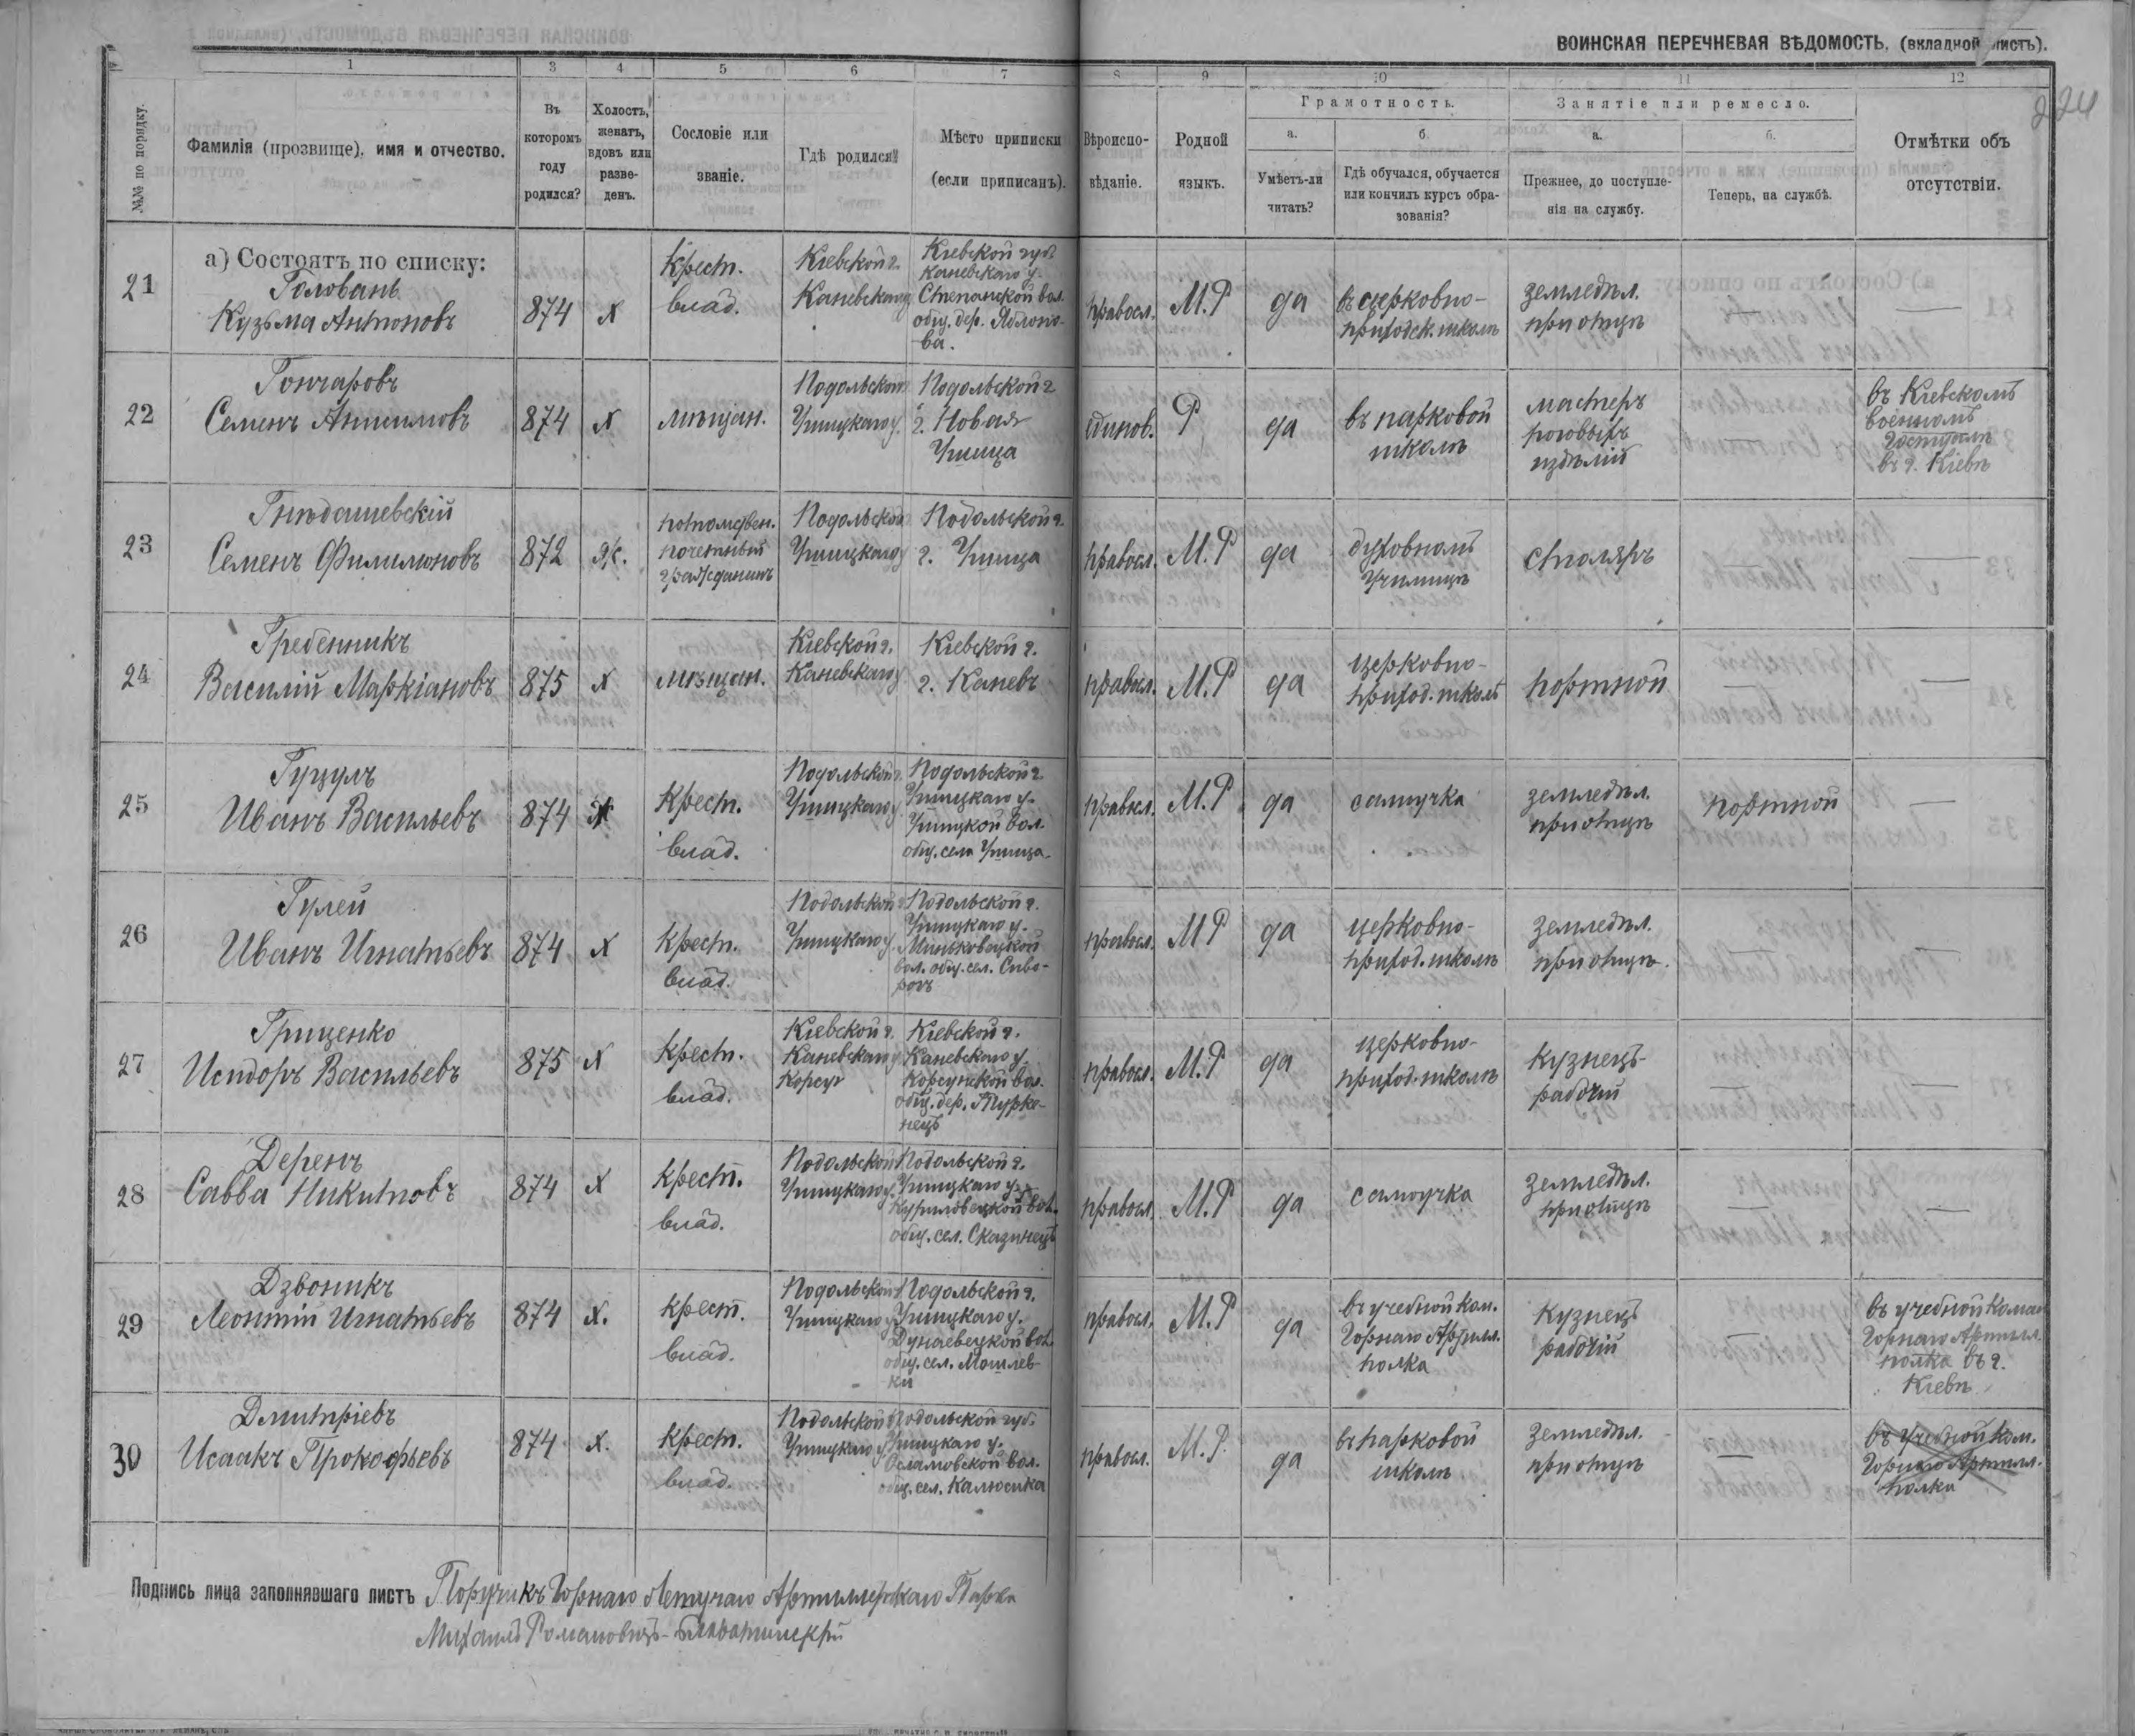 ВОИНСКАЯ ПЕРЕЧНЕВАЯ ВѢДОМОСТЬ, (вкладной листъ).
224
1 3 4 5 6 7 8 9 10 11 12
№№ по порядку.
Фамилія (прозвище), имя и отчество.
Въ которомъ году родился?
Холостъ, женатъ, вдовъ или разведенъ.
Сословіе или званіе.
Гдѣ родился?
Мѣсто приписки (если приписанъ).
Вѣроисповѣданіе.
Родной языкъ.
Грамотность.
а.
Умѣетъ-ли читать?
б.
Гдѣ обучался, обучается или кончилъ курсъ образованія?
Занятіе или ремесло.
а.
Прежнее, до поступленія на службу.
б.
Теперь, на службѣ.
Отмѣтки объ отсутствіи.
а) Состоятъ по списку:
21
Голованъ
Кузьма Антоновъ
874
Х
Крест.
влад.
Кіевской г.
Каневскаго у
Кіевской губ
Каневскаго у.
Степанской вол.
общ. дер. Яблоно-
ва.
правосл.
М.Р
да
въ церковно-
приходск. школѣ
земледѣл.
при отцѣ
—
22
Гончаровъ
Семенъ Анисимовъ
874
Х
мѣщан.
Подольской
Ушицкаго у.
Подольской г
г. Новая
Ушица
единов.
Р
да
въ парковой
школѣ
мастеръ
роговыхъ
издѣлій
въ Кіевскомъ
военномъ
госпиталѣ
въ г. Кіевѣ
23
Гнѣдашевскій
Семенъ Филимоновъ
872
Ж.
потомствен.
почетный
гражданинъ
Подольской
Ушицкаго у
Подольской г.
г. Ушица
правосл.
М.Р
да
духовномъ
училищѣ
столяръ
—
24
Гребенникъ
Василій Маркіановъ
875
Х
мѣщан.
Кіевской г.
Каневскаго у
Кіевской г.
г. Каневъ
правосл.
М.Р
да
церковно-
приход. школѣ
портной
—
—
25
Гуцулъ
Иванъ Васильевъ
874
Крест.
влад.
Подольской г.
Ушицкаго у
Подольской г.
Ушицкаго у.
Ушицкой вол.
общ. села Ушица
правосл.
М.Р
да
самоучка
земледѣл.
при отцѣ
портной
—
26
Гулей
Иванъ Игнатьевъ
874
Х
Крест.
влад.
Подольской г
Ушицкаго у.
Подольской г.
Ушицкаго у.
Миньковецкой
вол. общ. сел. Сиво-
рогъ
правосл.
М.Р
да
церковно-
приход. школѣ
земледѣл.
при отцѣ.
—
—
27
Гриценко
Исидоръ Васильевъ
875
Х
Крест.
влад.
Кіевской г.
Каневскаго у
Корсун
Кіевской г.
Каневскаго у.
Корсунской вол.
общ. дер. Турке-
нецъ
правосл.
М.Р
да
церковно-
приход. школѣ
кузнецъ-
рабочій
—
—
28
Деренъ
Савва Никитовъ
874
Х
Крест.
влад.
Подольской
Ушицкаго у.
Подольской г.
Ушицкаго у.
Куриловецкой вол.
общ. сел. Сказинецъ
правосл.
М.Р
да
самоучка
земледѣл.
при отцѣ
—
—
29
Дзвоникъ
Леонтій Игнатьевъ
874
Х.
Крест.
влад.
Подольской
Ушицкаго у
Подольской г.
Ушицкаго у.
Дунаевецкой вол.
общ. сел.
правосл.
М.Р
да
въ учебной ком.
Горнаго Артилл.
полка
кузнецъ
рабочій
—
въ учебной коман
Горнаго Артилл.
полка въ г.
Кіевѣ
30
Дмитріевъ
Исаакъ Прокофьевъ
874
Х.
Крест.
влад.
Подольской
Ушицкаго у
Подольской губ.
Ушицкаго у.
Осламовской вол.
общ. сел. Калюсика
правосл.
М.Р.
да
въ парковой
школѣ
земледѣл.
при отцѣ
—
въ учебной ком.
Горнаго Артилл.
полка
Подпись лица заполнявшаго листъ Поручикъ Горнаго Летучаго Артиллерійскаго Парка
Михаилъ Романовичъ-